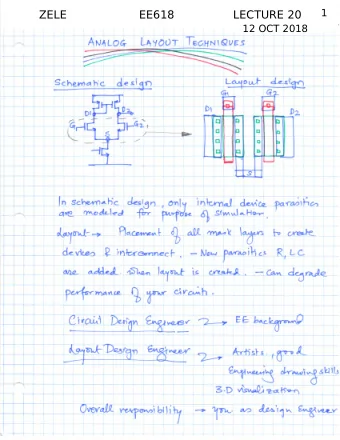 ZELE EE618 LECTURE 20 1
12 OCT 2018
ANALOG LAYOUT TECHNIQUES
Schematic design Layout design
G1 G2
D1 D2 D1 D2
G1 G2
S
S
In schematic design, only internal device parasitics
are modeled for purpose of simulation.
Layout → Placement of all mask layers to create
devices & interconnect. - New parasitics R, L C
are added when layout is created. - Can degrade
performance of your circuit.
Circuit Design Engineer → EE background
Layout Design Engineer → Artists, good
Engineering drawing skills
3-D visualization
Overall responsibility → you as design Engineer